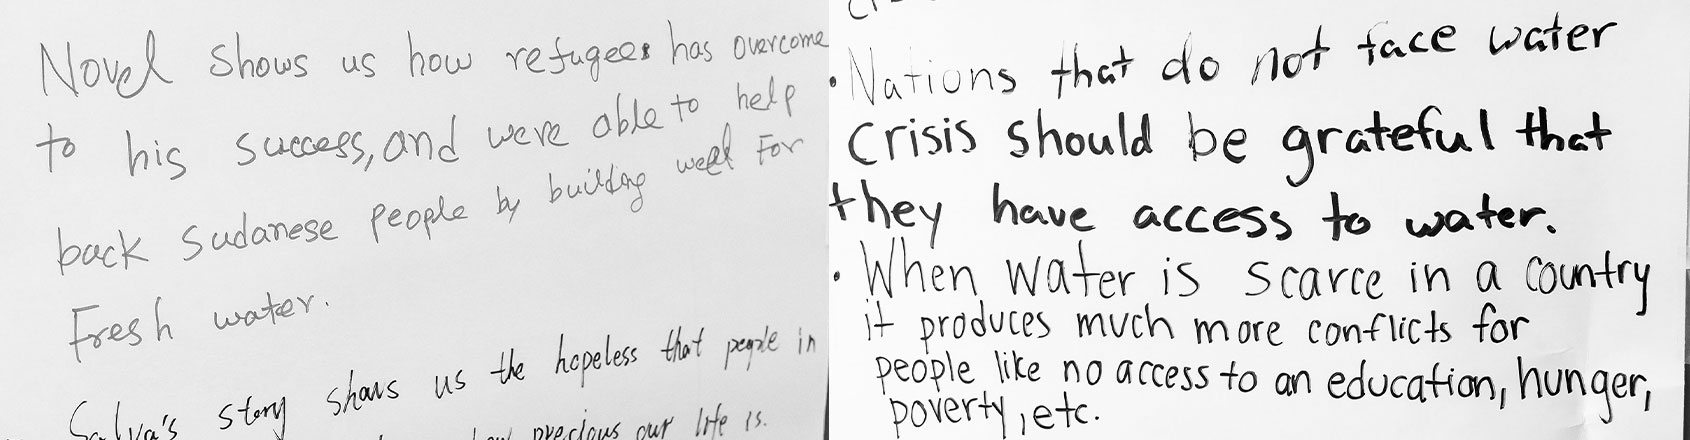 Novel shows us how refugees has overcome
to his success, and were able to help
back Sudanese people by building well For
Fresh water.
Salva's story shows us the hopeless that people in
how precious our life is.
• Nations that do not face water
crisis should be grateful that
they have access to water.
• When water is scarce in a country
it produces much more conflicts for
people like no access to an education, hunger,
poverty, etc.